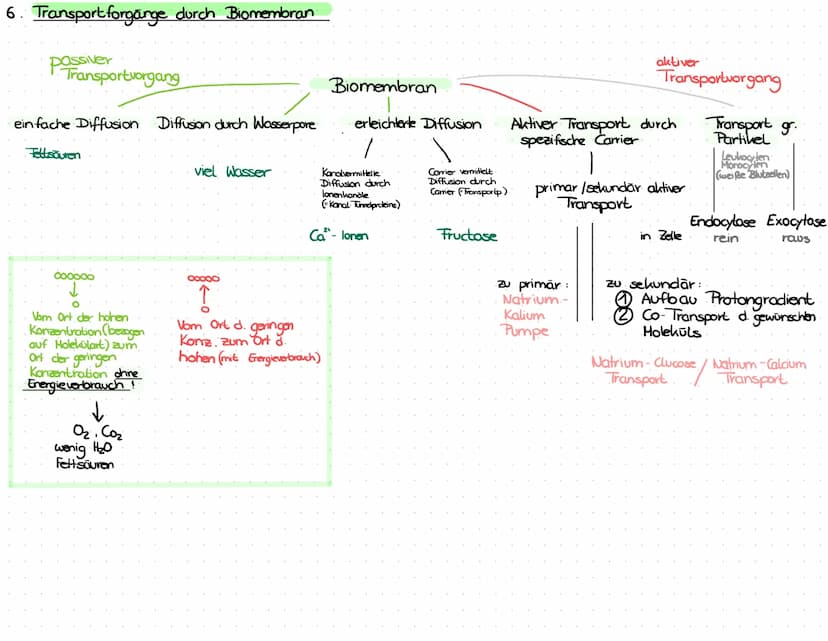 6. Transportforgänge durch Biomembran
passiver
Transportvorgang
aktiver
Transportvorgang
Biomembran
einfache Diffusion
Diffusion durch Wasserpore
erleichterte Diffusion
Aktiver Transport durch
spezifische Carrier
Transport gr.
Partikel
Fettsäuren
viel Wasser
Kanalvermittelte
Diffusion durch
Ionenkanäle
(= Kanal Tunnelproteine)
Carrier vermittelt
Diffusion durch
Carrier (=Transportp)
primär/sekundär aktiver
Transport
Leukozyten
Monocyten
(weiße Blutzellen)
Ca²⁺-Ionen
Fructose
in Zelle
Endocytose
rein
Exocytose
raus
zu primär:
Natrium-
Kalium
Pumpe
zu sekundär:
① Aufbau Protongradient
② Co-Transport d. gewünschten
Moleküls
Natrium-Glucose
Transport
/
Natrium-Calcium
Transport
Vom Ort der hohen
Konzentration (bezogen
auf Molekülart) zum
Ort der geringen
Konzentration ohne
Energieverbrauch!
O₂, CO₂
wenig H₂O
Fettsäuren
Vom Ort d. geringen
Konz. zum Ort d.
hohen (mit Energieverbrauch)